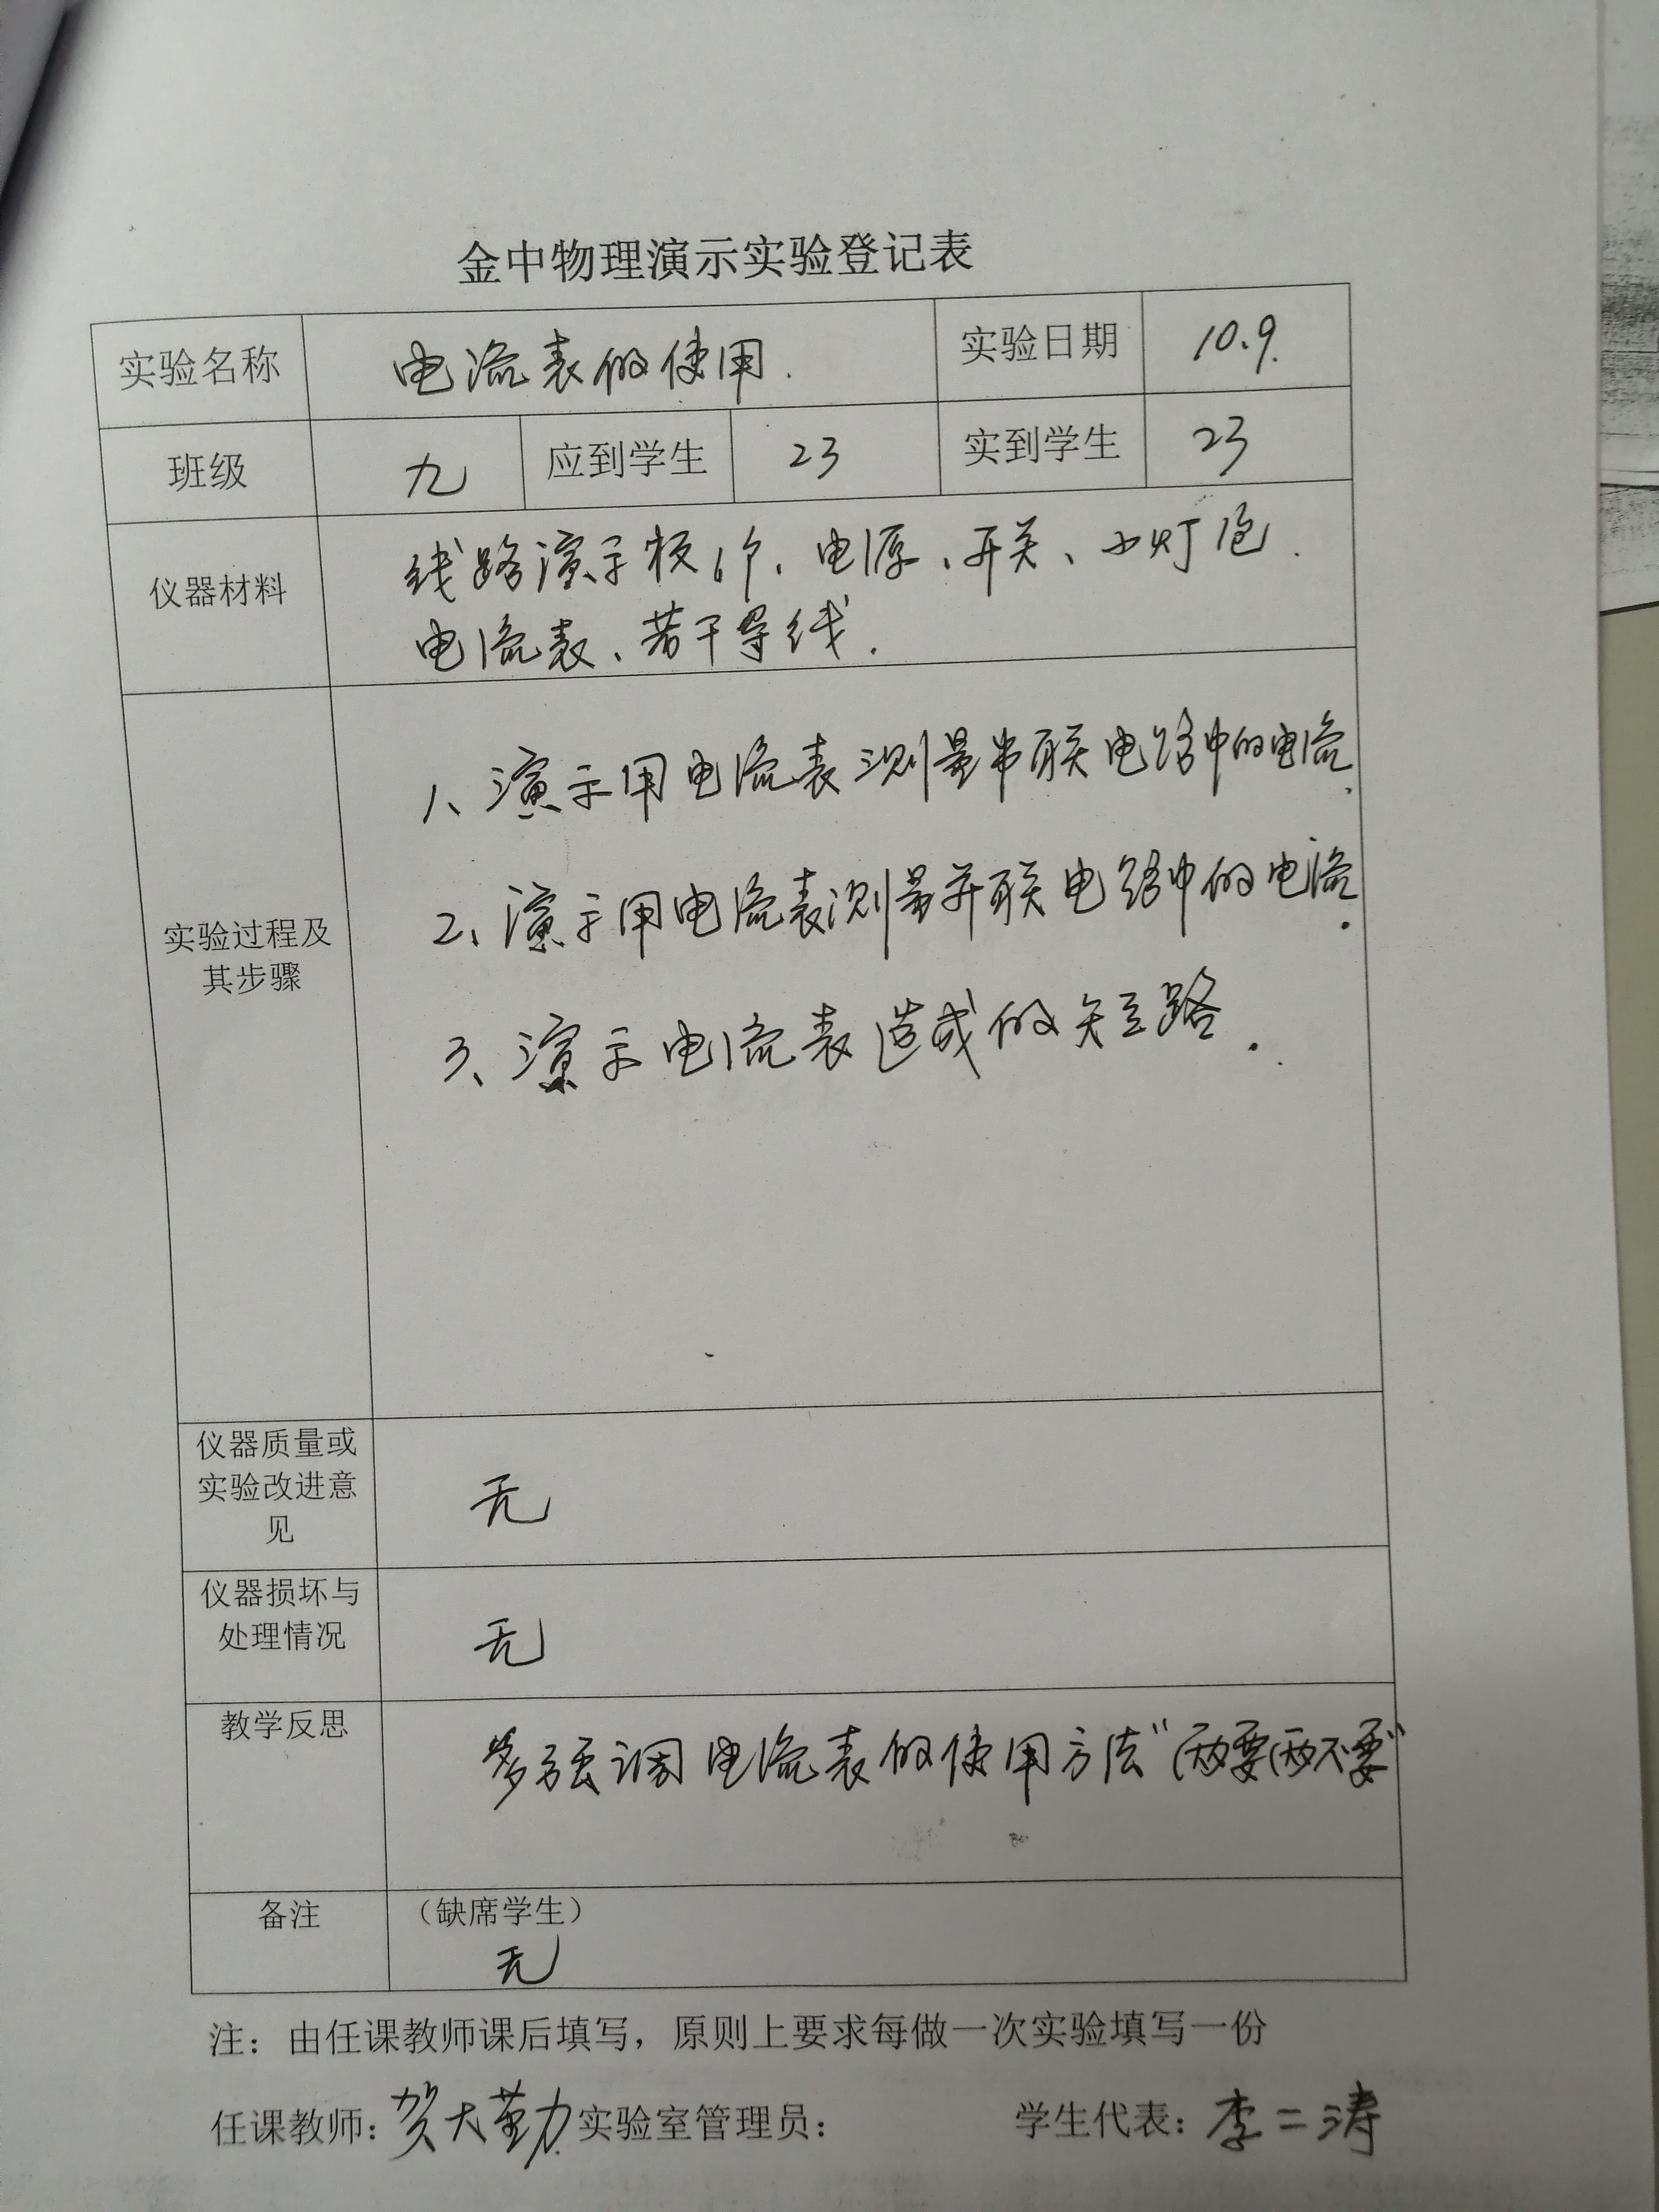 金中物理演示实验登记表
实验名称 电流表的使用. 实验日期 10.9.
班级 九 应到学生 23 实到学生 23
仪器材料
线路演示板1个、电源、开关、小灯泡.
电流表、若干导线.
实验过程及
其步骤
1、演示用电流表测量串联电路中的电流.
2、演示用电流表测量并联电路中的电流.
3、演示电流表造成的短路.
仪器质量或
实验改进意
见
无
仪器损坏与
处理情况
无
教学反思
多强调电流表的使用方法“两要两不要”
备注 (缺席学生)
无
注：由任课教师课后填写，原则上要求每做一次实验填写一份
任课教师：贺大勤 实验室管理员： 学生代表：李二涛